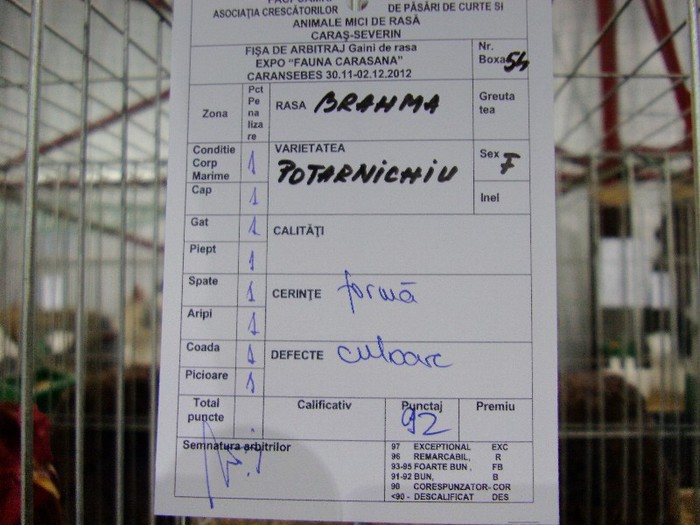 ASOCIAȚIA CRESCĂTORILOR DE PĂSĂRI DE CURTE SI
ANIMALE MICI DE RASĂ
CARAȘ-SEVERIN
FIȘA DE ARBITRAJ Gaini de rasa
EXPO "FAUNA CARASANA"
CARANSEBES 30.11-02.12.2012
Nr.
Boxa 54
Zona
Pct
Pe
na
liza
re
RASA BRAHMA
Greuta
tea
Conditie
Corp
Marime 1
VARIETATEA
POTARNICHIU
Sex F
Cap 1
Inel
Gat 1
CALITĂȚI
Piept 1
Spate 1
CERINȚE formă
Aripi 1
Coada 1
DEFECTE culoare
Picioare 1
Total
puncte
Calificativ
Punctaj
92
Premiu
Semnatura arbitrilor
97 EXCEPTIONAL EXC
96 REMARCABIL, R
93-95 FOARTE BUN, FB
91-92 BUN, B
90 CORESPUNZATOR- COR
<90 - DESCALIFICAT DES